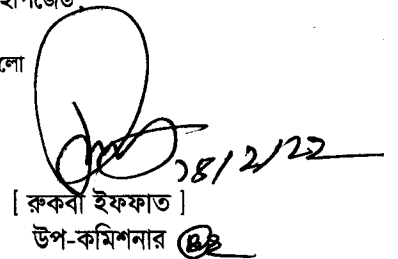 লো
১৪/2/22
[ রুকবা ইফফাত ]
উপ-কমিশনার